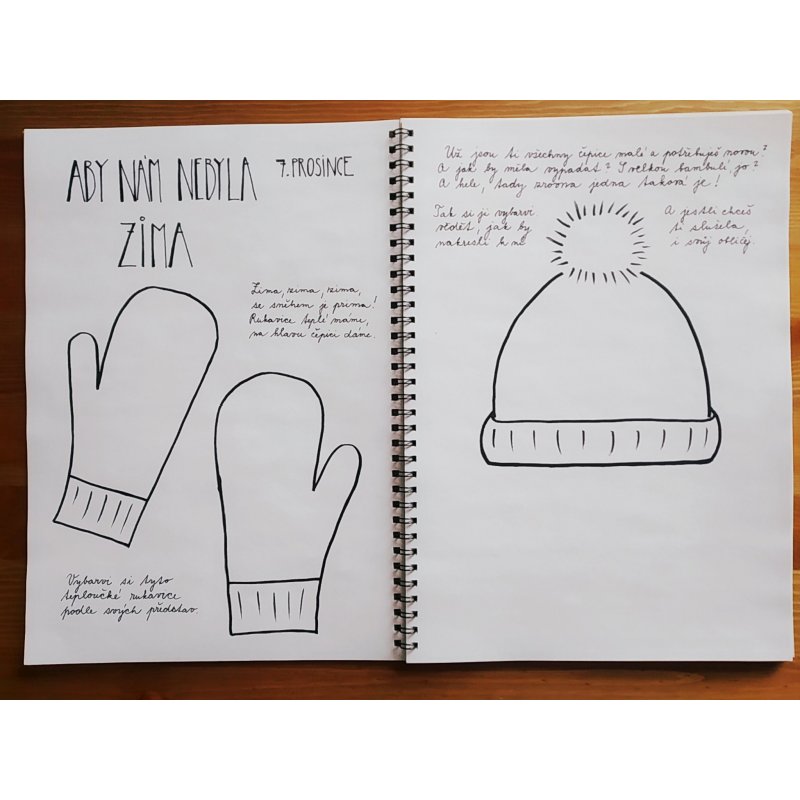 ABY NÁM NEBYLA
ZIMA
7. PROSINCE
Zima, zima, zima,
se sněhem je prima!
Rukavice teplé máme,
na hlavu čepici dáme.
Vybarvi si tyto
teploučké rukavice
podle svých představ.
Už jsou ti všechny čepice malé a potřebuješ novou?
A jak by měla vypadat? S velkou bambulí, jo?
A hele, tady zrovna jedna taková je!
Tak si ji vybarvi.
vědět, jak by
nakresli k ní
A jestli chceš
ti slušela,
i svůj obličej.